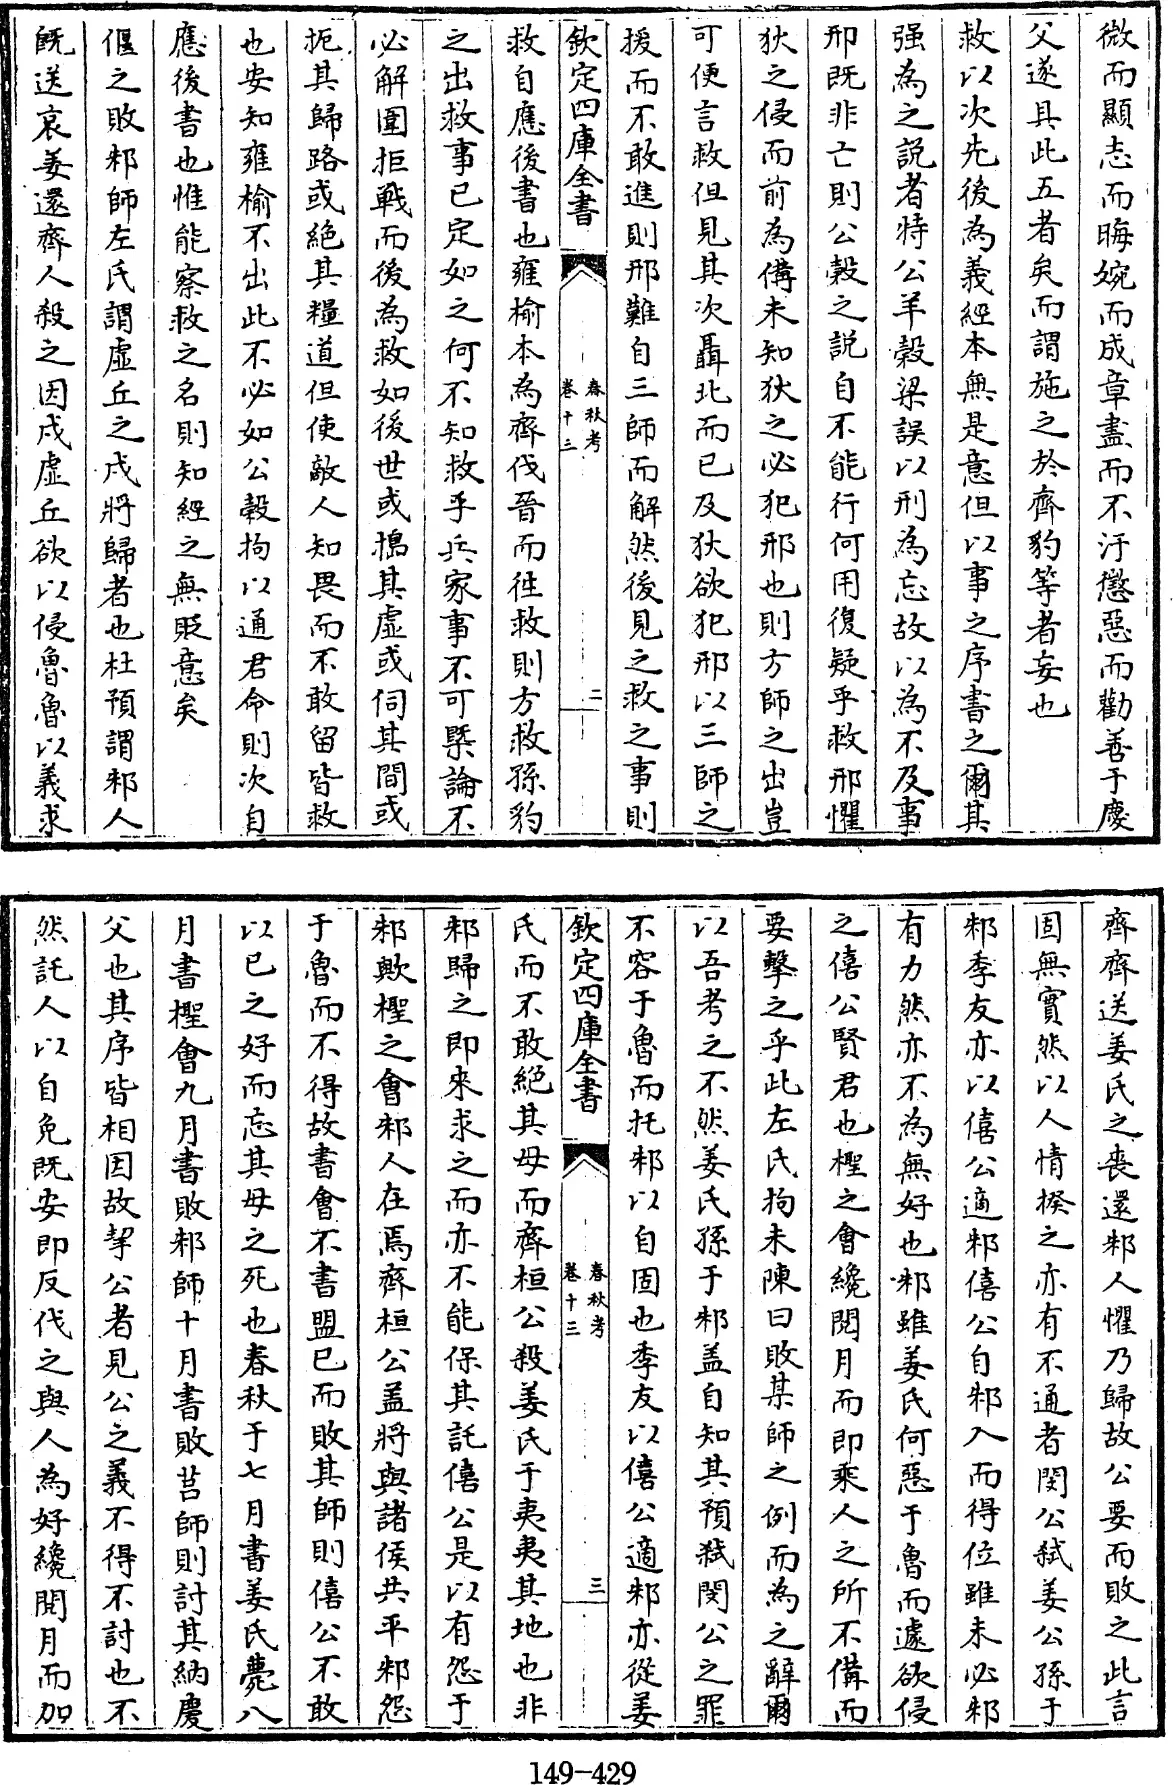 微而顯志而晦婉而成章盡而不汙懲惡而勸善于慶
父遂具此五者矣而謂施之於齊豹等者妄也
救以次先後為義經本無是意但以事之序書之爾其
强為之說者特公羊穀梁誤以刑為忘故以為不及事
邢既非亡則公穀之說自不能行何用復疑乎救邢懼
狄之侵而前為備未知狄之必犯邢也則方師之出豈
可便言救但見其次聶北而已及狄欲犯邢以三師之
援而不敢進則邢難自三師而解然後見之救之事則
欽定四庫全書
春秋考
卷十三
二
救自應後書也雍榆本為齊伐晉而徃救則方救孫豹
之出救事已定如之何不知救乎兵家事不可槩論不
必解圍拒戰而後為救如後世或擣其虛或伺其間或
扼其歸路或絕其糧道但使敵人知畏而不敢留皆救
也安知雍榆不出此不必如公穀拘以通君命則次自
應後書也惟能察救之名則知經之無貶意矣
偃之敗邾師左氏謂虛丘之戍將歸者也杜預謂邾人
既送哀姜還齊人殺之因戍虛丘欲以侵魯魯以義求
齊齊送姜氏之喪還邾人懼乃歸故公要而敗之此言
固無實然以人情揆之亦有不通者閔公弑姜公孫于
邾季友亦以僖公適邾僖公自邾入而得位雖未必邾
有力然亦不為無好也邾雖姜氏何惡于魯而遽欲侵
之僖公賢君也檉之會纔閱月而即乘人之所不備而
要擊之乎此左氏拘未陳曰敗某師之例而為之辭爾
以吾考之不然姜氏孫于邾盖自知其預弑閔公之罪
不容于魯而托邾以自固也季友以僖公適邾亦從姜
欽定四庫全書
春秋考
卷十三
三
氏而不敢絕其母而齊桓公殺姜氏于夷夷其地也非
邾歸之即來求之而亦不能保其託僖公是以有怨于
邾歟檉之會邾人在焉齊桓公盖將與諸侯共平邾怨
于魯而不得故書會不書盟已而敗其師則僖公不敢
以已之好而忘其母之死也春秋于七月書姜氏薨八
月書檉會九月書敗邾師十月書敗莒師則討其納慶
父也其序皆相因故挈公者見公之義不得不討也不
然託人以自免既安即反伐之與人為好纔閱月而加
149-429